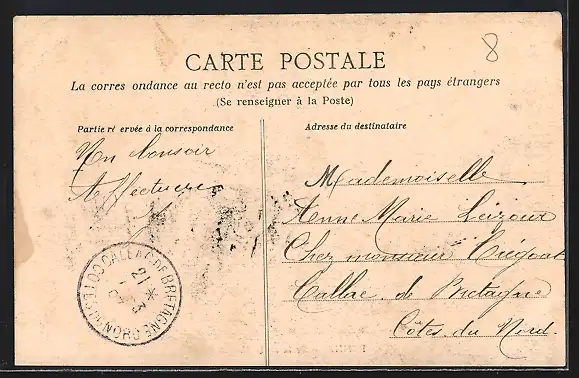 8
CARTE POSTALE
La corres ondance au recto n'est pas acceptée par tous les pays étrangers
(Se renseigner à la Poste)
Partie ré ervée à la correspondance
Adresse du destinataire
Un bonsoir
Affectueux
Mademoiselle
Anne Marie Leizour
Chez monsieur
Callac de Bretagne
Côtes du Nord
CALLAC-DE-BRETAGNE
21